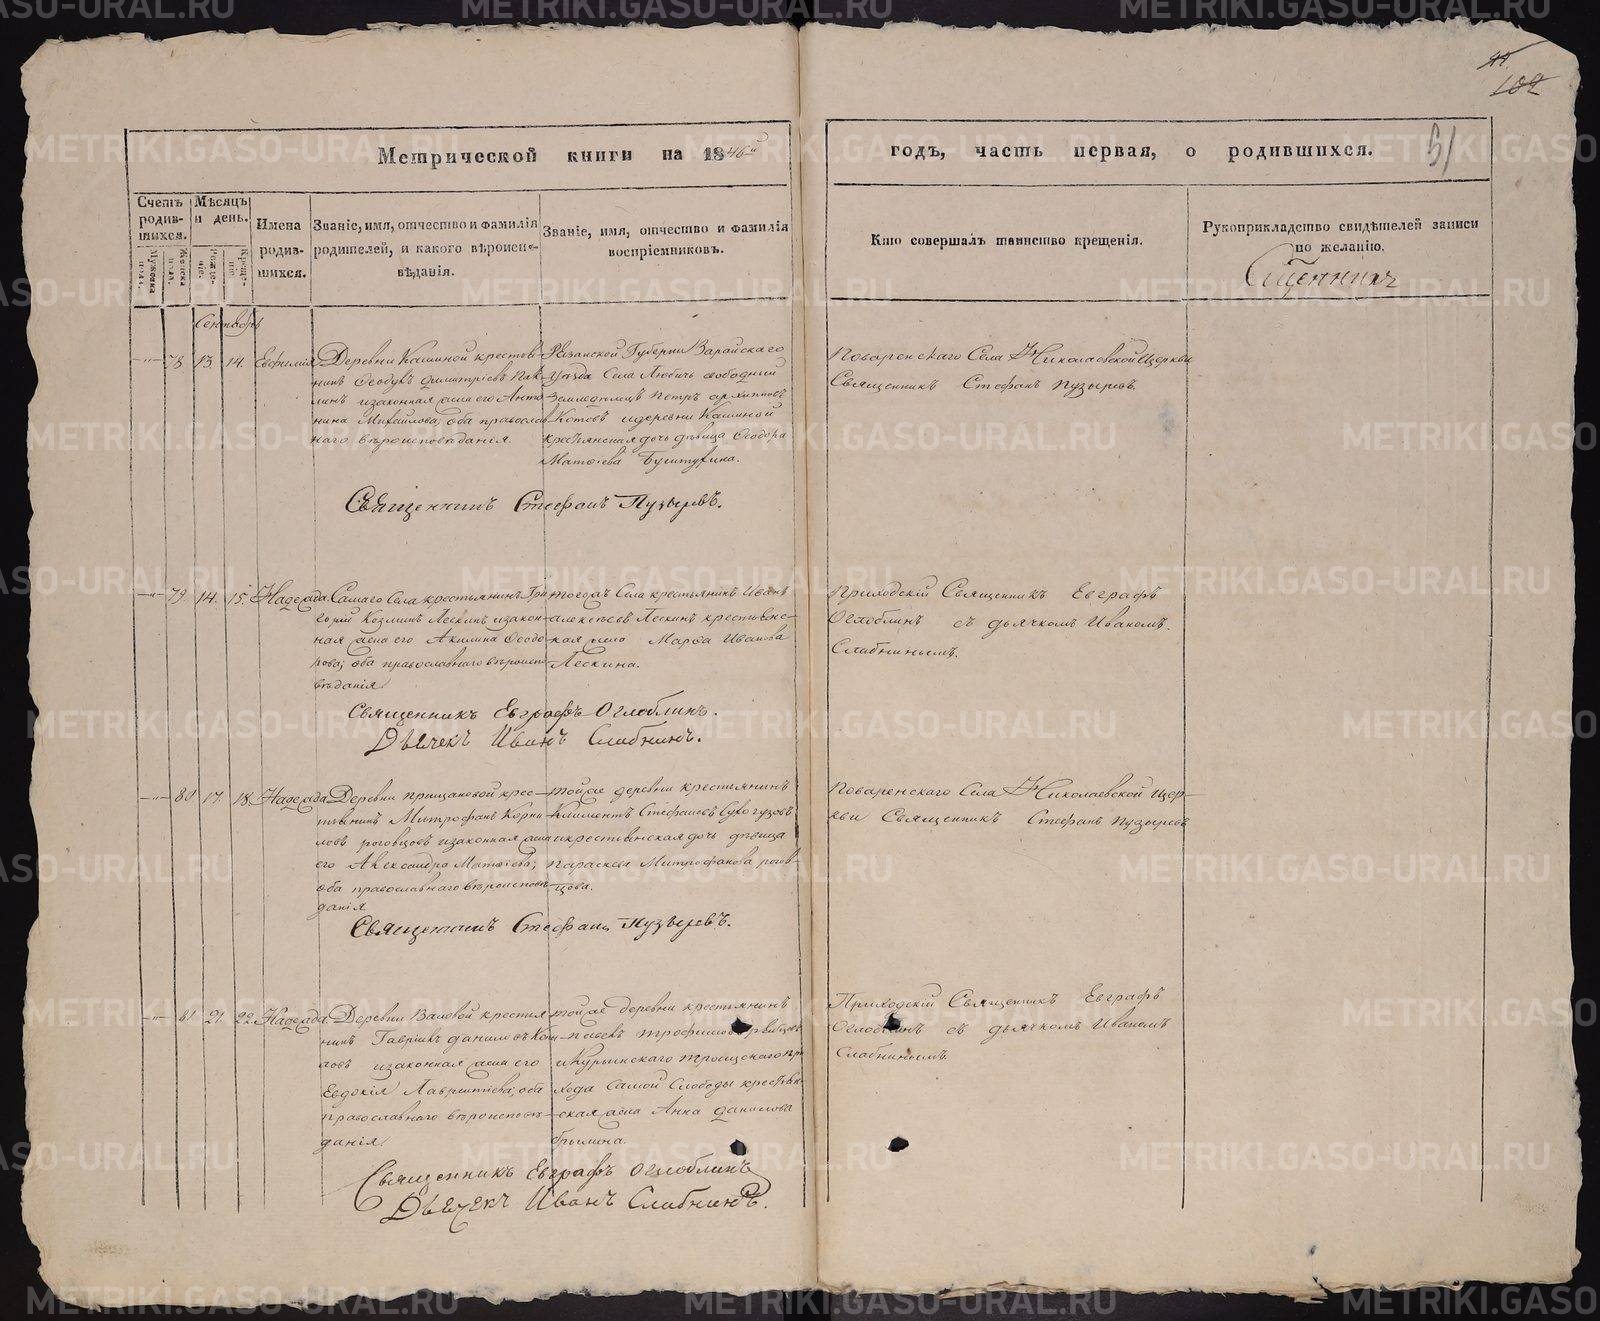 102
Метрической книги на 1846й
годъ, часть первая, о родившихся.
51
Счетъ родив-шихся.
Мѣсяцъ и день.
Имена родив-шихся.
Званіе, имя, отчество и фамилія родителей, и какого вѣроиспо-вѣданія.
Званіе, имя, отчество и фамилія воспріемниковъ.
Кто совершалъ таинство крещенія.
Рукоприкладство свидѣтелей записи по желанію.
Мужеска пола.
Женска пола.
Рожде-ніе.
Креще-ніе.
Сентябрь
78 13. 14. Евфимія
Деревни Кашиной крестья-
нинъ Ѳеодулъ Димитріевъ
линъ и законная жена его Анто-
нина Михайлова, оба православ-
наго вѣроисповѣданія.
Рязанской Губерніи Зарайскаго
уѣзда Села Любичь свободный
Земледѣлецъ Петръ Архиповъ
Котовъ и деревни Кашиной
крестьянская дочь дѣвица Ѳеодора
Матѳіева
Поваренскаго Села Николаевской Церкви
Священникъ Стефанъ Пузыревъ
Священникъ Стефанъ Пузыревъ.
79 14. 15. Надежда
Самаго Села крестьянинъ Гри-
горій Козминъ Пескинъ и закон-
ная жена его Акилина Ѳеодо-
рова; оба православнаго вѣроиспо-
вѣданія
тогожъ Села крестьянинъ Иванъ
Алексѣевъ Пескинъ крестьянс-
кая жена Марѳа Иванова
Пескина.
Приходскій Священникъ Евграфъ
Оглоблинъ съ дьячкомъ Иваномъ
Слабнинымъ.
Священникъ Евграфъ Оглоблинъ.
Дьячекъ Иванъ Слабнинъ.
80 17. 18. Надежда
Деревни Прищановой крес-
тьянинъ Митрофанъ Корни-
ловъ Роговцовъ и законная жена
его Александра Матѳіева;
оба православнаго вѣроисповѣ-
данія
тойже деревни крестьянинъ
Климентъ Стефановъ Сухогузовъ
и крестьянская дочь дѣвица
Параскева Митрофанова Рогов-
цова.
Поваренскаго Села Николаевской Цер-
кви Священникъ Стефанъ Пузыревъ
Священникъ Стефанъ Пузыревъ.
81 21. 22. Надежда
Деревни Валовой крестья-
нинъ Гавріилъ Даниловъ
и законная жена его
Евдокія Лаврентіева, оба
православнаго вѣроисповѣ-
данія
тойже деревни крестьянинъ
Трофимовъ
и Курьинскаго Троицкаго при-
хода самой Слободы крестьян-
ская жена Анна Данилова
Брылина.
Приходскій Священникъ Евграфъ
Оглоблинъ съ дьячкомъ Иваномъ
Слабнинымъ
Священникъ Евграфъ Оглоблинъ
Дьячекъ Иванъ Слабнинъ.
METRIKI.GASO-URAL.RU